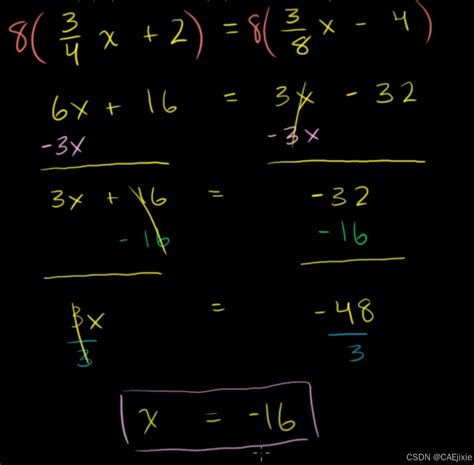 8(3/4 x + 2) = 8(3/8 x - 4)
6x + 16 = 3x - 32
-3x -3x
3x + 16 = -32
-16 -16
3x/3 = -48/3
x = -16
CSDN @CAEjixie